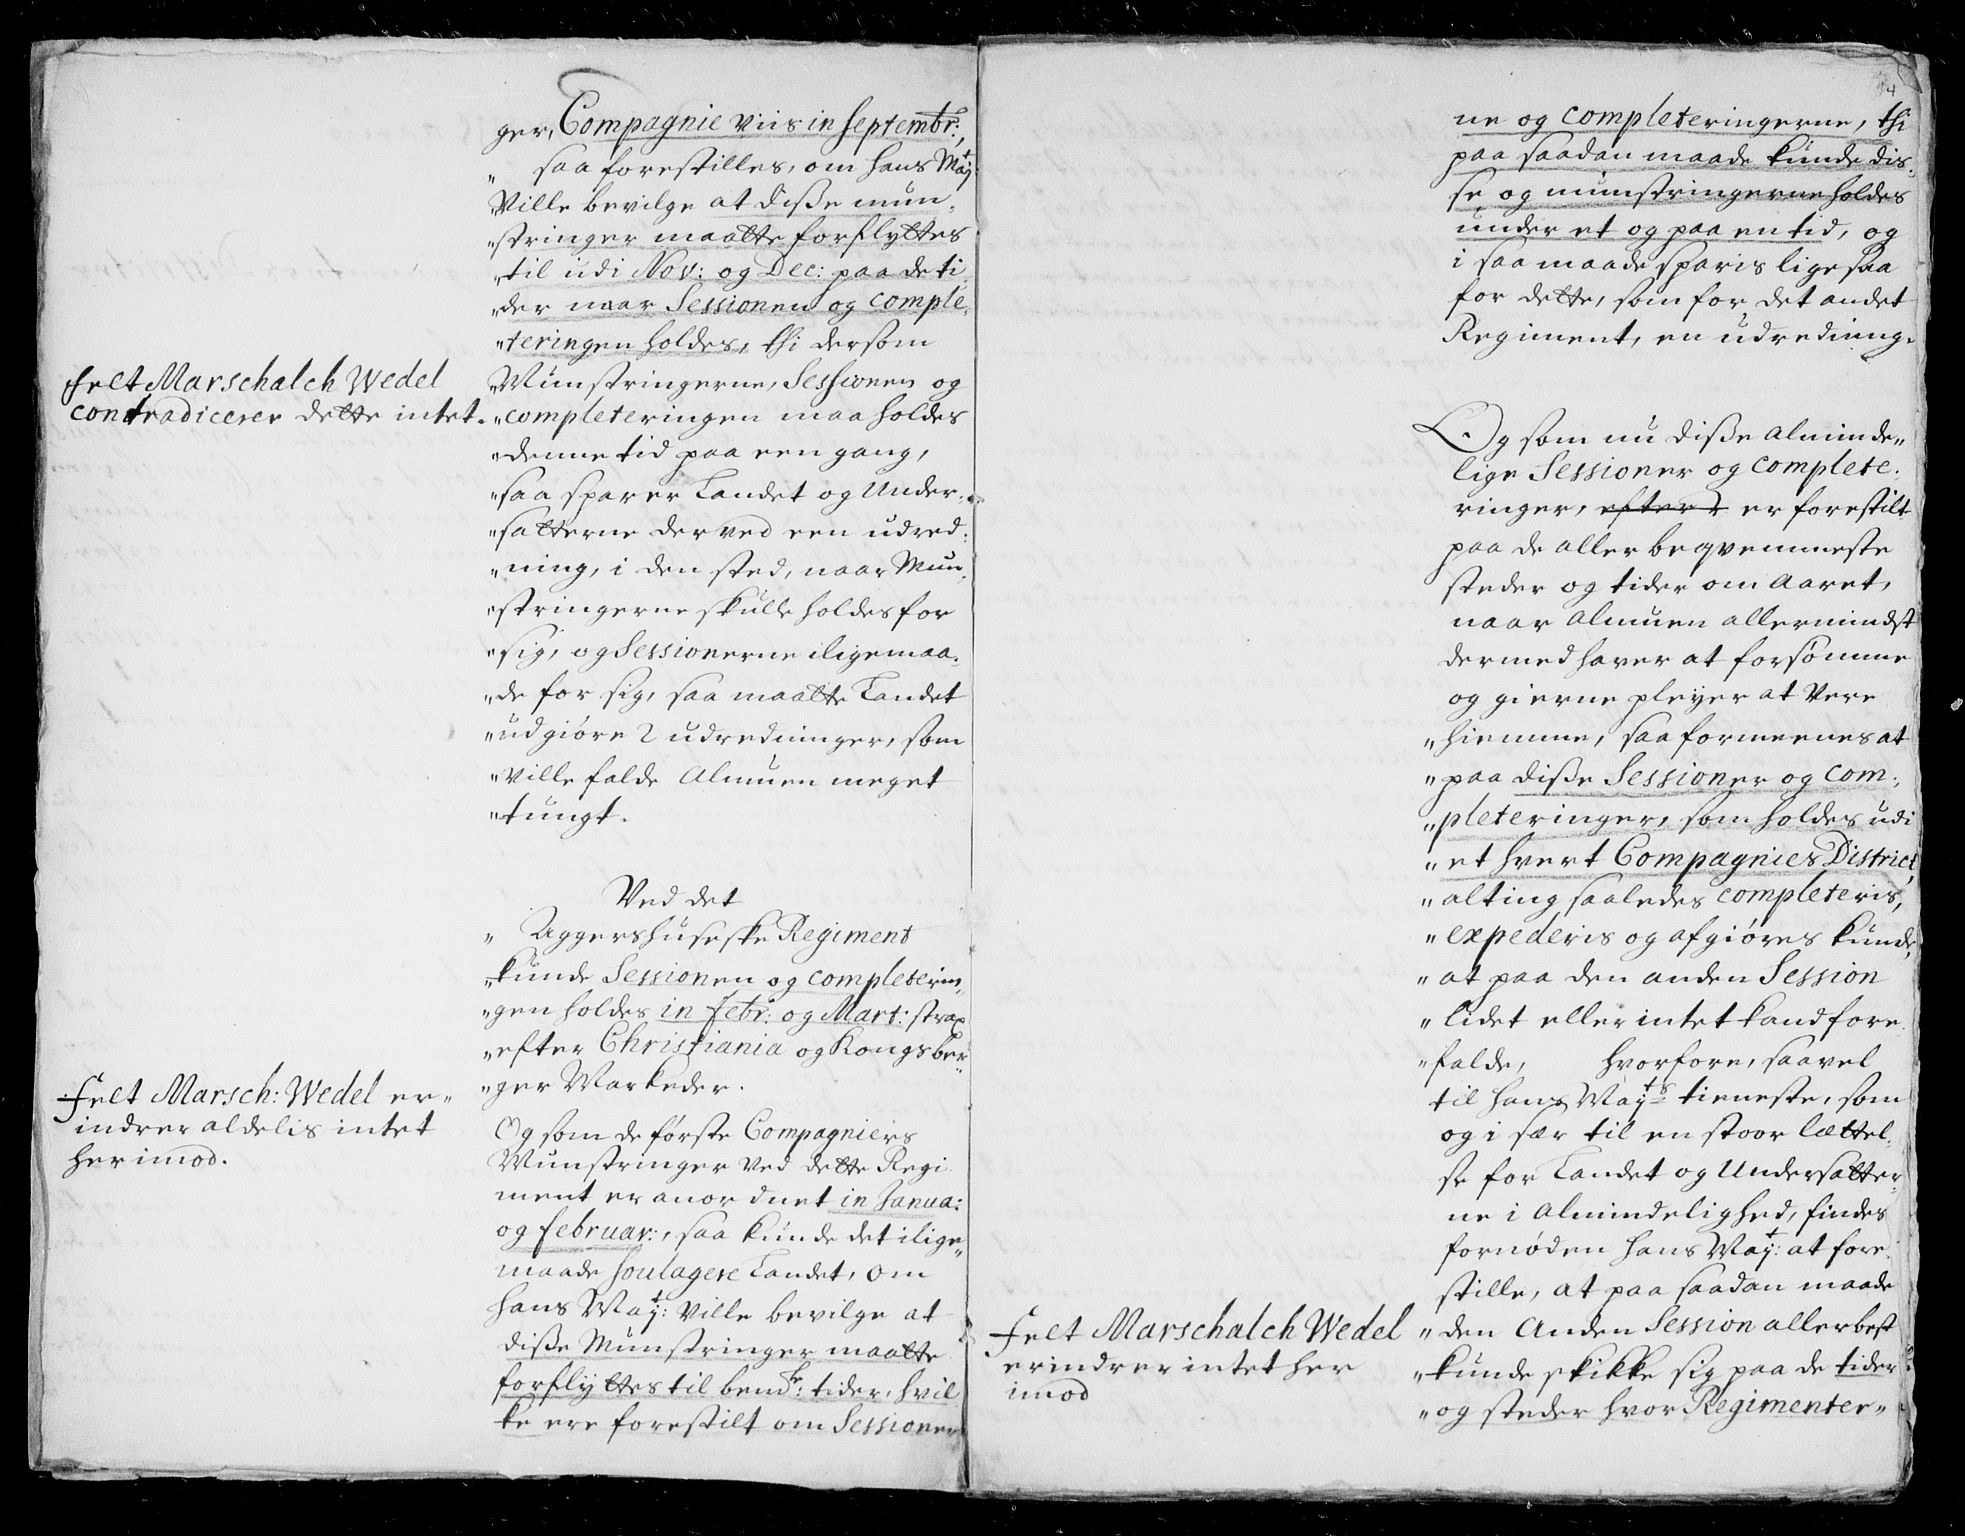 ger, Compagnie viis in Septembr:,
„ saa forestilles, om hans Maÿt
„Ville bevilge at diße mun„
„stringer maatte forflyttes
„til udi Nov: og Dec: paa de ti
„der naar Sessionen og comple„
„teringen holdes, thi dersom
„Munstringerne, Sessionen og
„completeringen maa holdes
„denne tid paa een gang,
„saa sparer Landet og Under„
„satterne derved een udred„
„ning, i den sted, naar Mun„
„stringerne skulle holdes for
„sig, og Sessionerne iligemaa„
„de for sig, saa maatte Landet
„udgiøre 2 udredninger, som
„ville falde Almuen meget
„tungt.
Felt Marschalch Wedel
contradicerer dette intet.
Ved det
„ Aggershuseske Regiment
„kunde Sessionen og completerin„
„gen holdes in Febr: og Mart: strax
„efter Christiania og Kongsber„
„ger Markeder.
Og som de første Compagniers
Munstringer ved dette Regi
ment er anordnet in Janua:
og Februar:, saa kunde det ilige„
maade soulagere Landet, om
hans Maÿt: Ville bevilge at
diße Munstringer maatte
forflyttes til bende: tider, hvil
ke ere forestilt om Sessioner
Felt Marsch: Wedel er„
indrer aldelis intet
herimod.
4
ne og completeringerne, thi
paa saadan maade kunde dis„
se og munstringerne holdes
under et og paa en tid, og
i saa maade sparis lige saa
for dette, som for det andet
Regiment, en udredning.
Og som nu diße alminde„
lige Sessioner og complete„
ringer, efter er forestilt
paa de aller beqvemmeste
steder og tider om Aaret,
naar Almuen allermindst
dermed haver at forsømme
og gierne pleyer at vere
„hiemme, saa formeenes at
„paa diße Sessioner og com„
„pleteringer, som holdes udi
„et hvert Compagnies District,
„alting saaledes completeris,
„expederis og afgiøres kunde,
„at paa den anden Session
„lidet eller intet kand fore
„falde, hvorfore, saavel
til Hans Maÿts tieneste, som
og i sær til en stoor lættel„
se for Landet og Undersatter„
ne i Almindelighed, findes
fornøden Hans Maÿt: at fore
stille, at paa saadan maade
„den Anden Session allerbest
„kunde skikke sig paa de tider
„og steder hvor Regimenter„
Felt Marschalch Wedel
erindrer intet her
imod